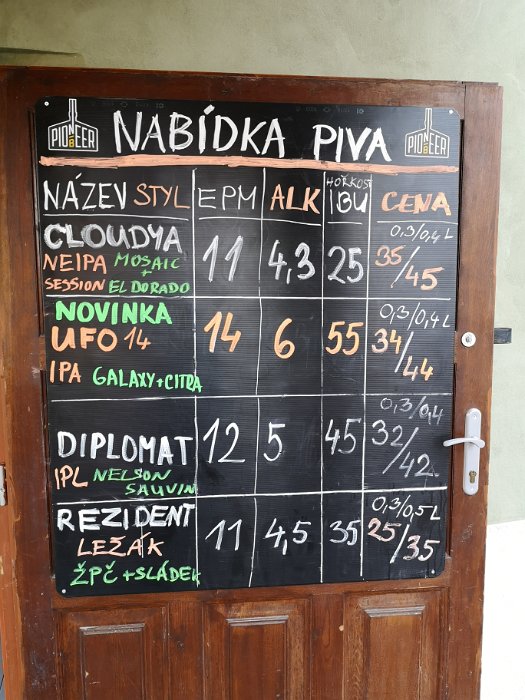 PIONEER
BEER
NABÍDKA PIVA
PIONEER
BEER
NÁZEV STYL EPM ALK HOŘKOST IBU CENA
CLOUDYA 11 4,3 25 0,3/0,4 L 35/45
NEIPA MOSAIC
+
SESSION EL DORADO
NOVINKA 14 6 55 0,3/0,4 L 34/44
UFO 14
IPA GALAXY+CITRA
DIPLOMAT 12 5 45 0,3/0,4 32/42.
IPL NELSON
SAUVIN
REZIDENT 11 4,5 35 0,3/0,5 L 25/35
LEŽÁK
ŽPČ + SLÁDEK